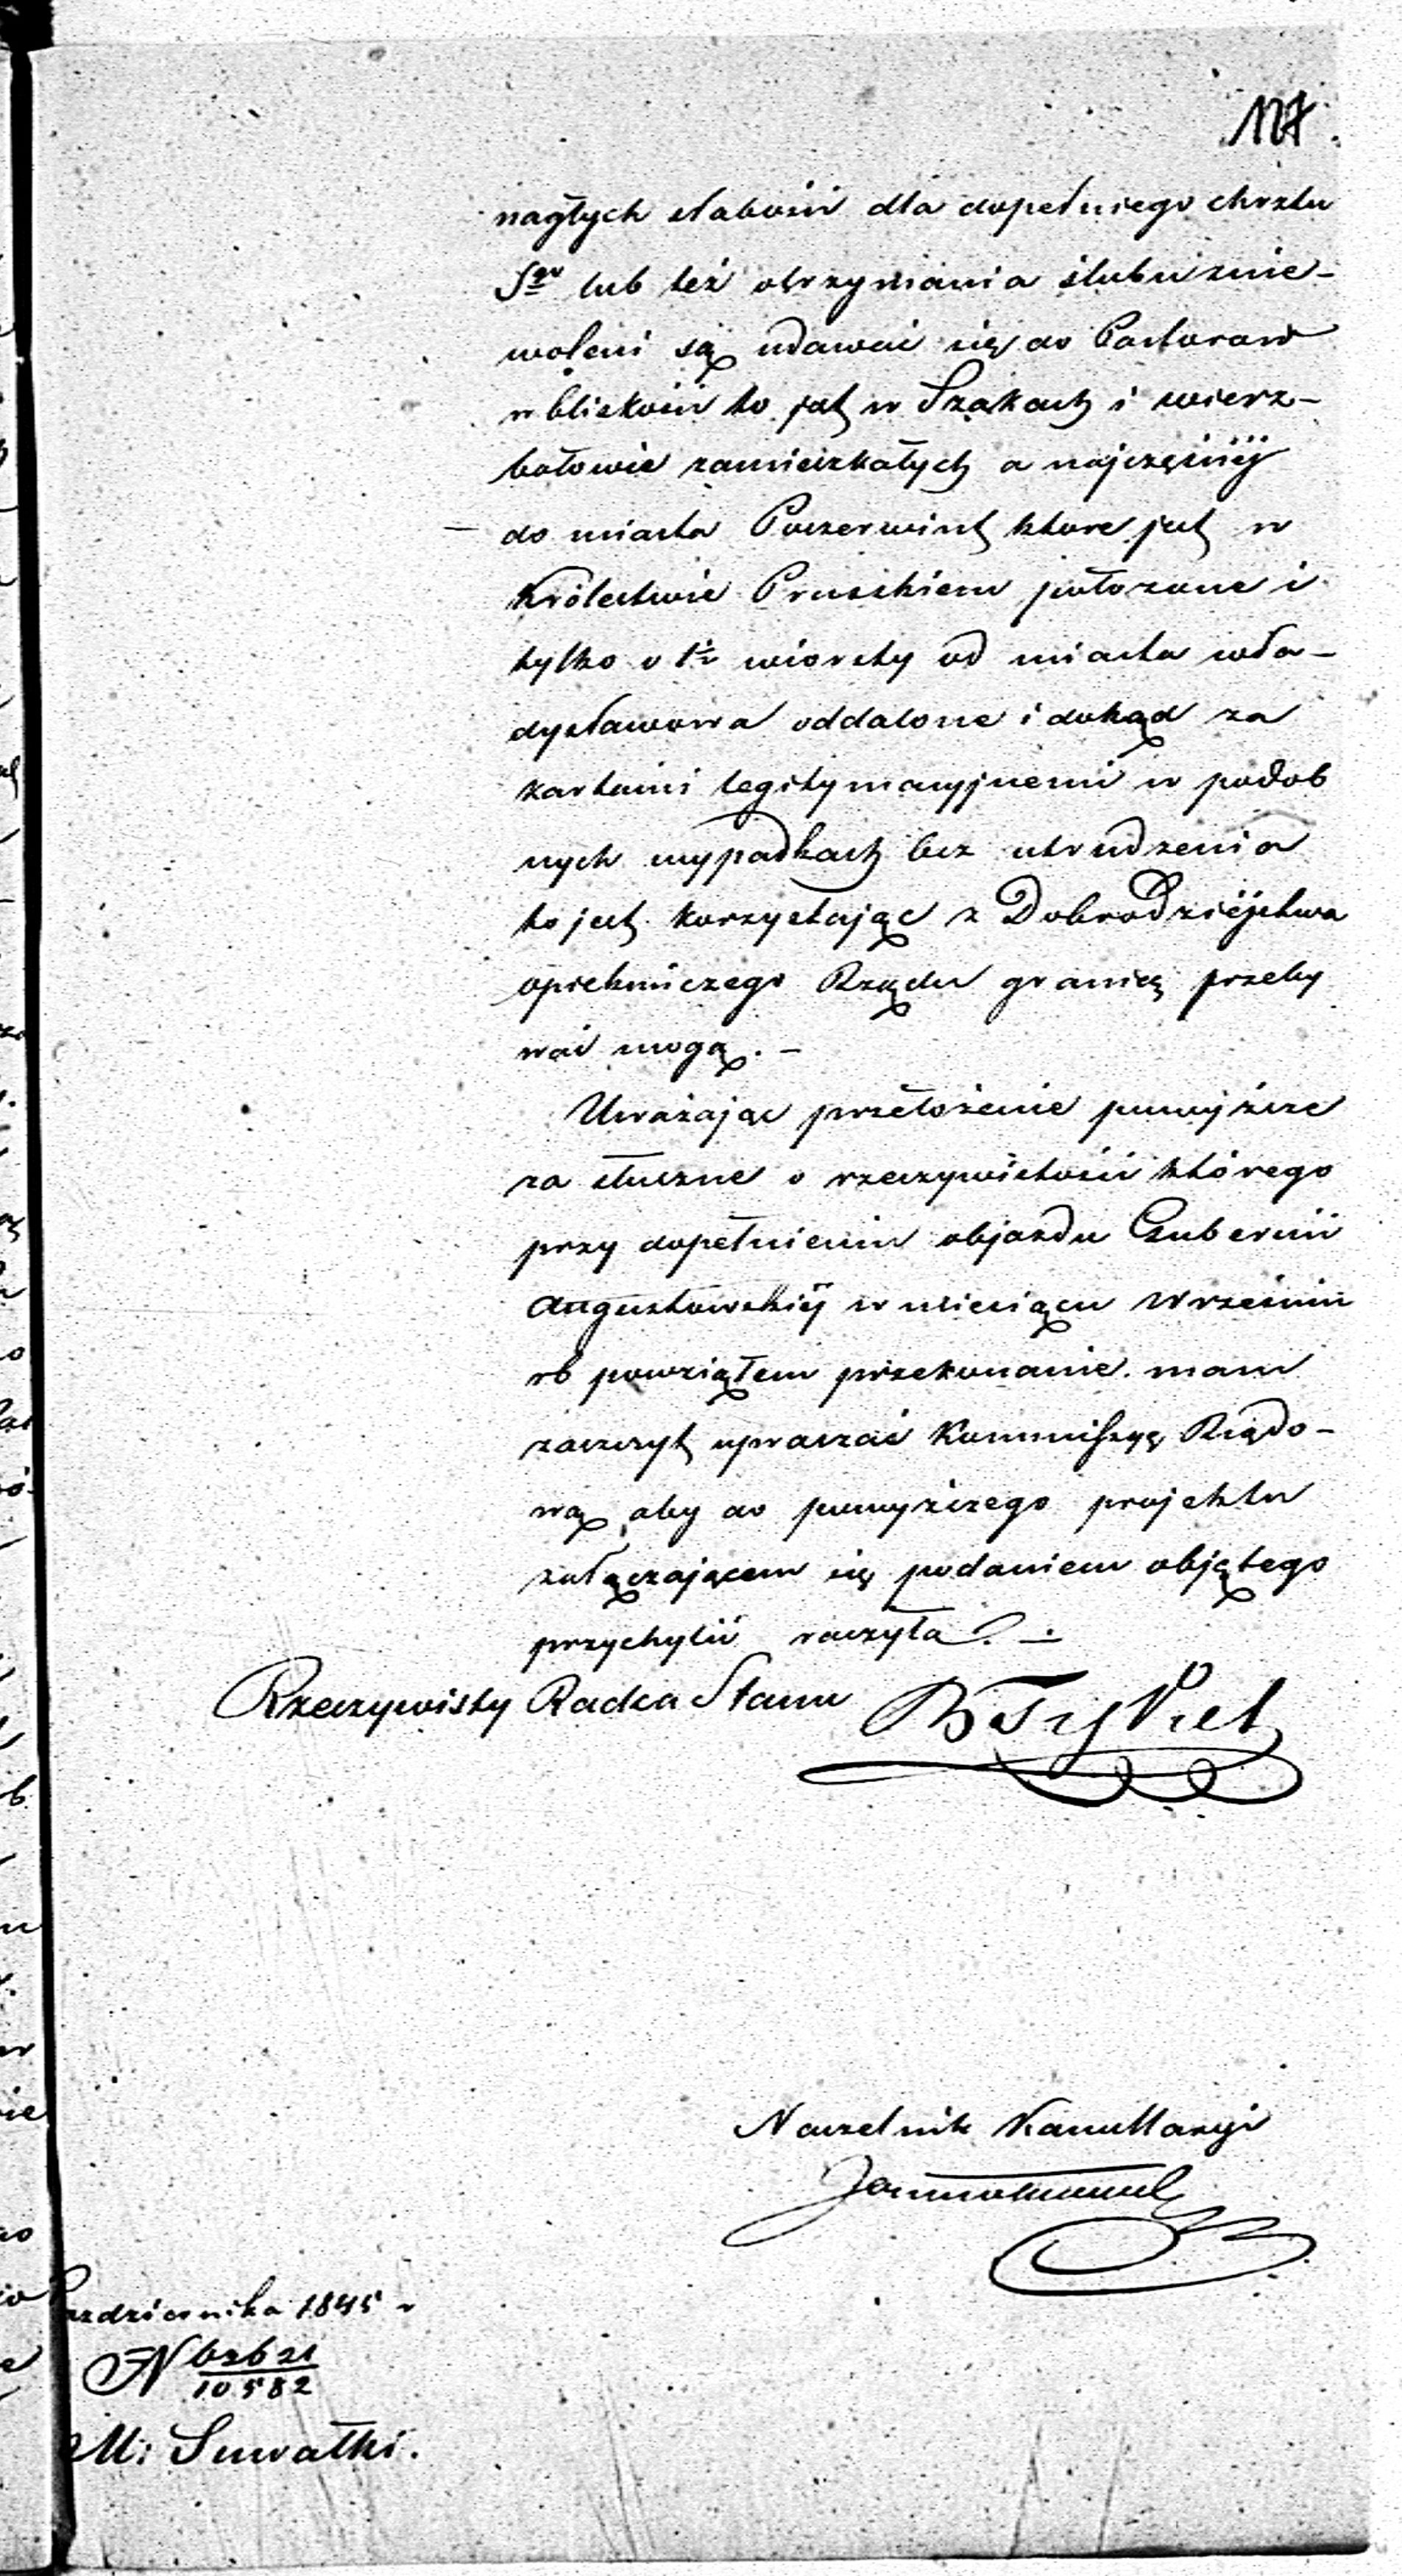 127.
nagłych słabości dla dopełniego chrztu
Sgo lub też otrzymania ślubu znie-
woleni są udawać się do Pastorów
w bliskości to jest w Szakach i wierz-
bołowie zamieszkałych a najczęściéj
do miasta które jest w
Królestwie Pruskiem położone i
tylko o wiorsty od miasta wła-
dysławowa oddalone i dokąd za
kartami legitymacyjnemi w podob
nych wypadkach bez utrudzenia
to jest korzystając z Dobrodziéjstwa
opiekuńczego Rządu granicę przeby
wać mogą. -
Uważając przełożenie powyższe
za słuszne o rzeczywistości którego
przy dopełnieniu objazdu Gubernii
Augustowskiéj w miesiącu Wrześniu
rb powziąłem przekonanie. mam
zaszczyt upraszać Kommissyę Rządo-
wą aby do powyższego projektu
załączającem się podaniem objętego
przychylić raczyła. -
Rzeczywisty Radca Stanu
Naczelnik Kancellaryi
Października 1845 r
N 62621
10582
M: Suwałki.